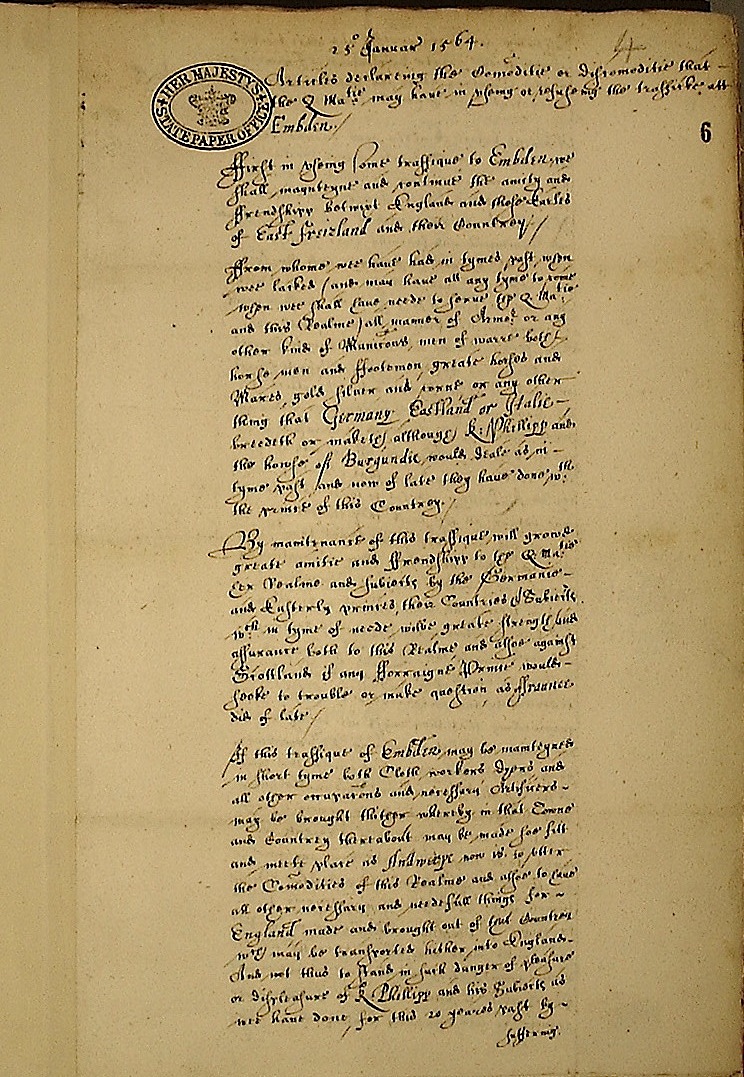 25° Januar 1564.
4
6
HER MAJESTY'S STATE PAPER OFFICE
Articles declareing the Comoditie or discomoditie that
the Q Matie may have in useing or refuseing the traffike att
Embden./
Ffirst in useing some traffique to Embden, we
shall maynteyne and continue the amity and
ffrendshipp betwixt England and those Earles
of East freizland and their Countrey//
Ffrom whome wee have had in tymes past, when
wee lacked (and may have all any tyme to come
when wee shall have neede to serve the Q Matie
and this Realme) all manner of Armor or any
other kind of Municons, men of warre both
horse men and ffootemen greate horses and
Mares, gold silver and corne or any other
thing that Germany Eastland or Italie
breedeth or maketh, although K: Phillipp and
the howse of Burgundie would deale as in
tyme past, and now of late they have done wth
the prince of this Countrey./
By maintenance of this traffique will growe
greate amitie and ffrendshipp to the Q Matie
her Realme and subiects by the Germanie
and Easterly princes, their Countries & Subiects
wch in tyme of neede, wilbe greate strength and
assurance both to this Realme and alsoe against
Scottland if any fforraigne Prince would
seeke to trouble or make question as ffraunce
did of late/
If this traffique of Embden may be mainteyned
in short tyme both Cloth workers dyers and
all other occupacons and necessary Artificers
may be brought thither whereby in that Towne
and Countrey thereabout may be made soe fitt
and meete place as Andwerpe now is to utter
the Comodities of this Realme and alsoe to have
all other necessary and needefull things for
England made and brought out of that Countrey
wch may be transported hither into England
And not thus to stand in such danger of pleasure
or displeasure of K Phillipp and his Subiects as
wee have done for this 20 yeares past by
suffering